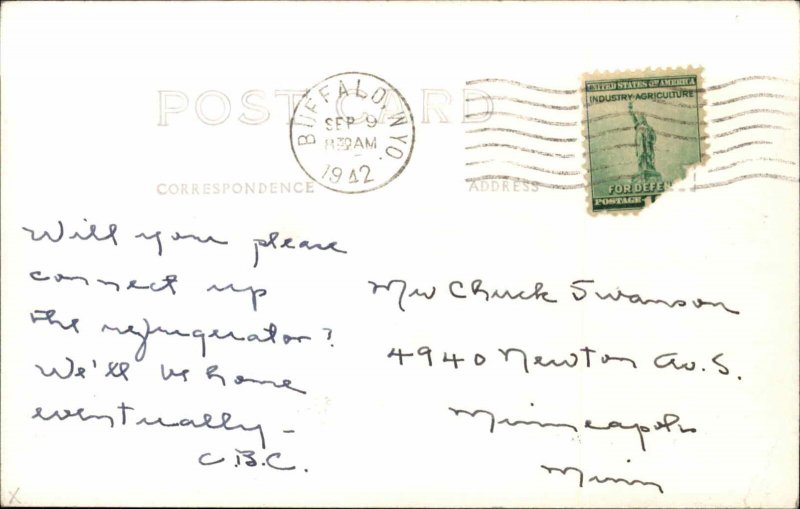 POST CARD
BUFFALO, N.Y.
SEP 9
8:30 AM
1942
UNITED STATES OF AMERICA
INDUSTRY AGRICULTURE
FOR DEFEN
POSTAGE 1
CORRESPONDENCE
ADDRESS
Will you please
connect up
the refrigerator?
We'll be home
eventually –
C.B.C.
Mr Chuck Swanson
4940 Newton Av. S.
Minneapolis
Minn
X